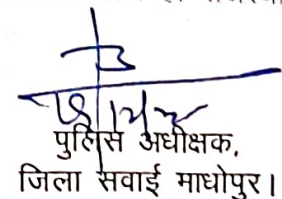 पुलिस अधीक्षक,
जिला सवाई माधोपुर।